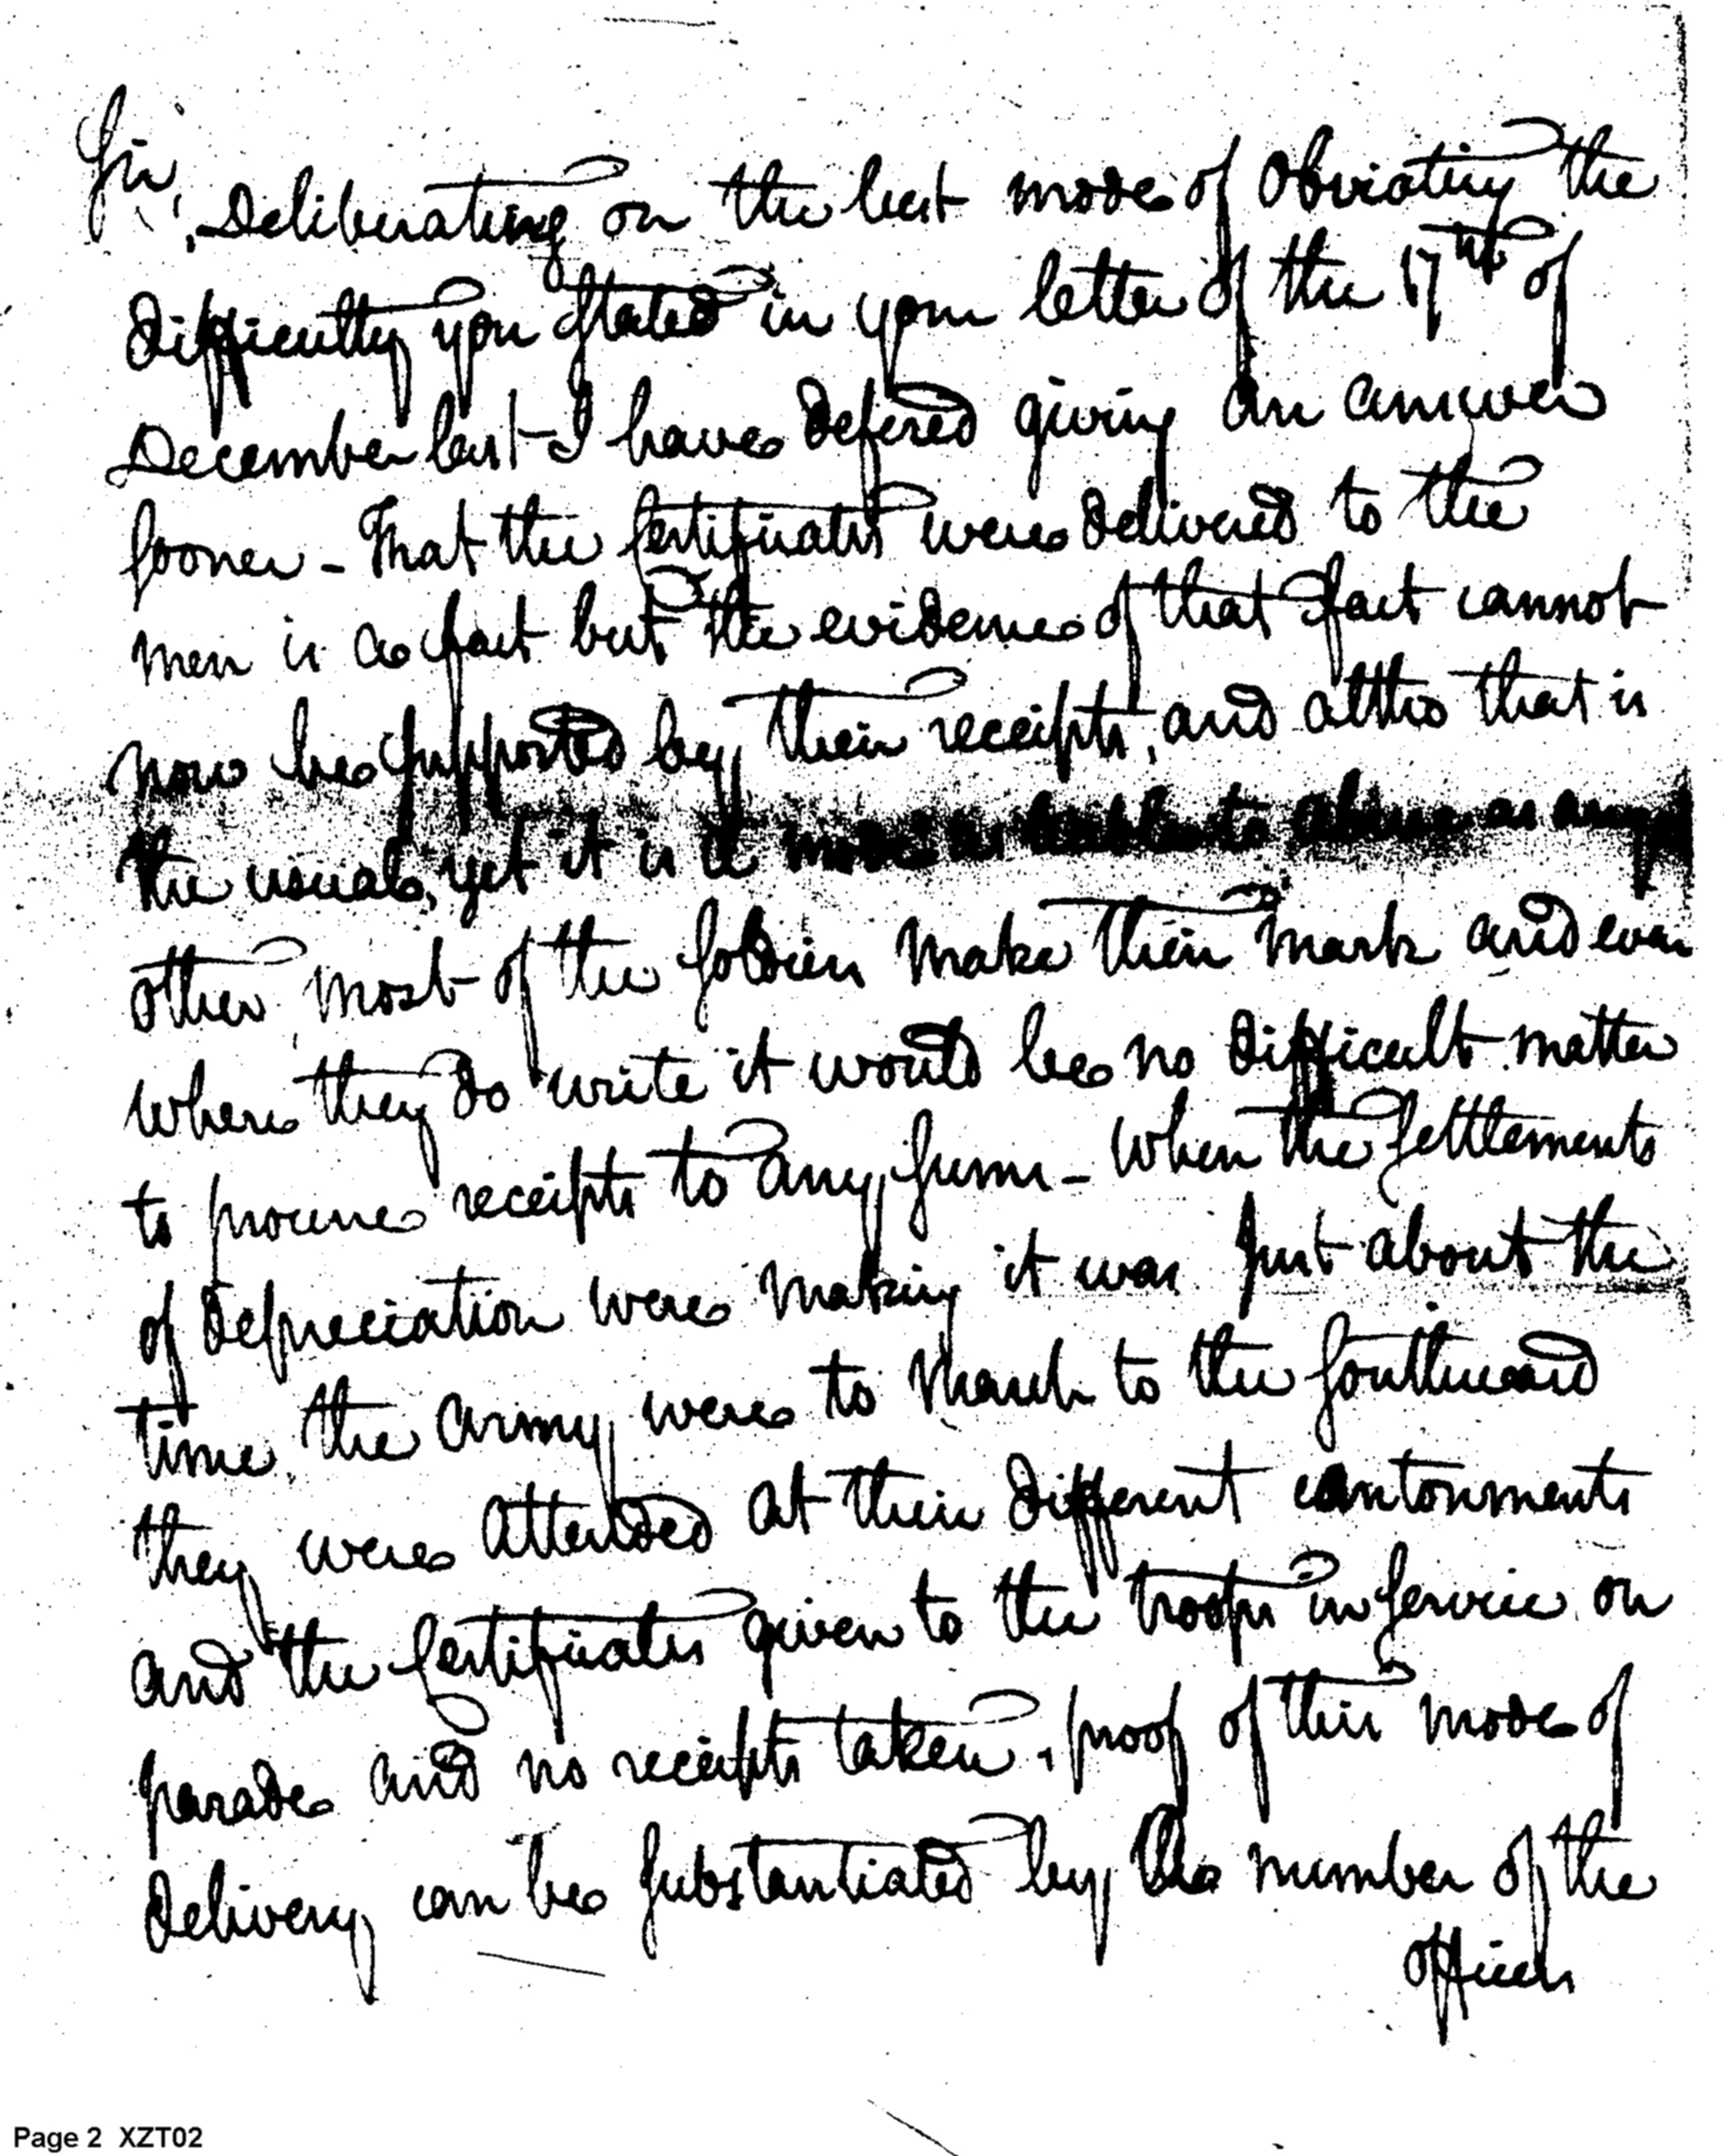 Sir,
Deliberating on the best mode of obviating the
difficulty you stated in your letter of the 17th of
December last I have defered giving an answer
sooner - That the Certificates were delivered to the
men is a fact but the evidence of that fact cannot
now be supported by their receipts, and altho that is
the usual, yet it is a mode as liable to abuse as any
other, most of the soldiers make their mark and even
where they do write it would be no difficult matter
to procure receipts to any sums - When the settlements
of depreciation were making it was just about the
time the army were to march to the southward
they were attended at their different cantonments
and the Certificates given to the troops in service on
parade and no receipts taken, proof of this mode of
delivery can be substantiated by the number of the
officers
Page 2 XZT02